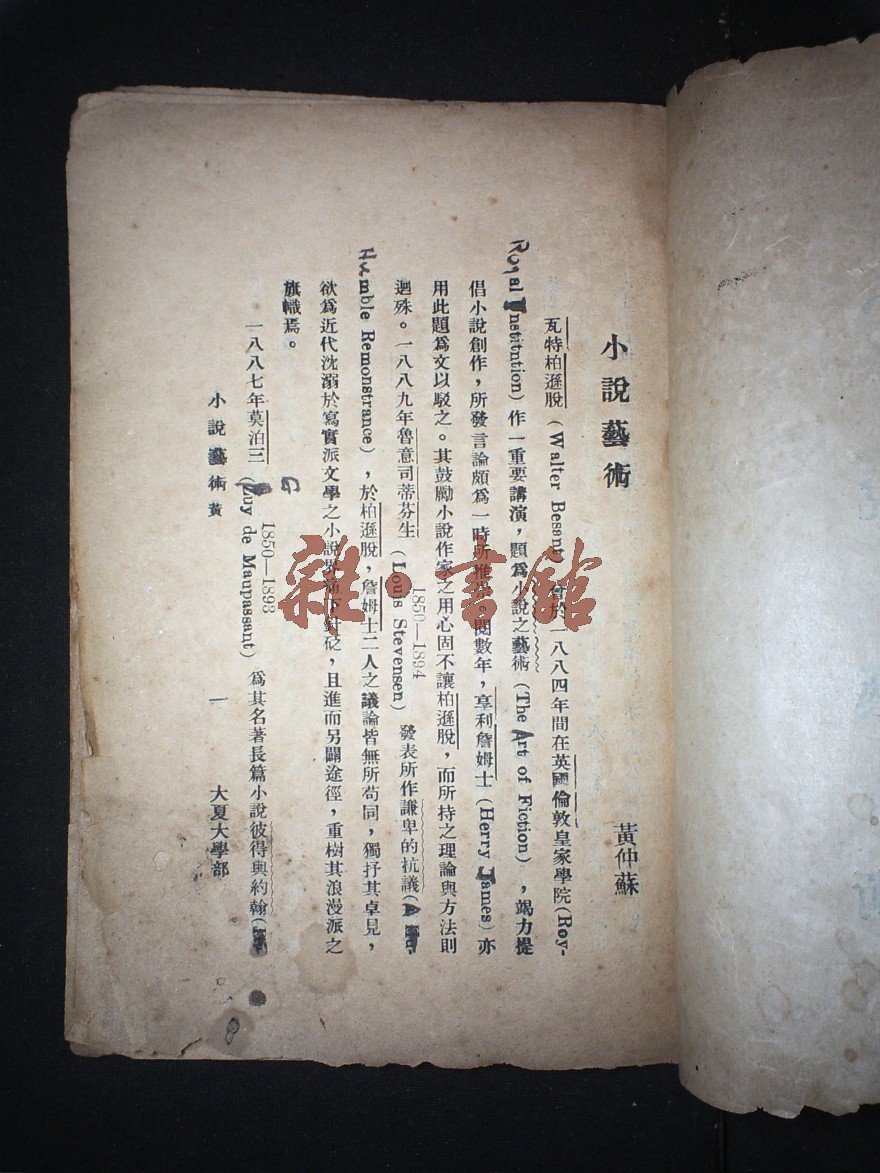 小說藝術
黃仲蘇
瓦特柏遜脫(Walter Besant)曾於一八八四年間在英國倫敦皇家學院(Roy-
Royal Institntion)作一重要講演,題爲小說之藝術(The Art of Fiction),竭力提
倡小說創作,所發言論頗爲一時所推崇。閱數年,享利詹姆士(Herry James)亦
用此題爲文以駁之。其鼓勵小說作家之用心固不讓柏遜脫,而所持之理論與方法則
迥殊。一八八九年魯意司蒂芬生(Louis Stevensen)發表所作謙卑的抗議(A
1850—1894
Humble Remonstrance),於柏遜脫,詹姆士二人之議論皆無所苟同,獨抒其卓見,
欲爲近代沈溺於寫實派文學之小說界痛下針砭,且進而另闢途徑,重樹其浪漫派之
旗幟焉。
一八八七年莫泊三(Guy de Maupassant)爲其名著長篇小說彼得與約翰(
1850—1893
G
小說藝術 黃 一 大夏大學部
雜·書館